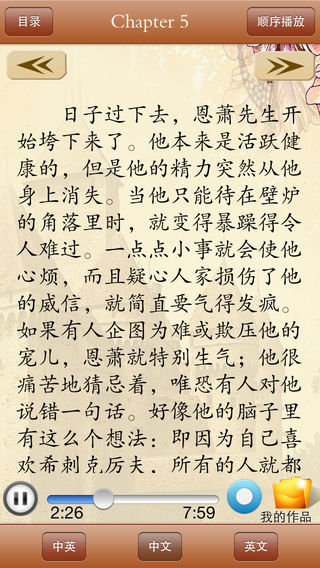 目录
Chapter 5
顺序播放
日子过下去，恩萧先生开
始垮下来了。他本来是活跃健
康的，但是他的精力突然从他
身上消失。当他只能待在壁炉
的角落里时，就变得暴躁得令
人难过。一点点小事就会使他
心烦，而且疑心人家损伤了他
的威信，就简直要气得发疯。
如果有人企图为难或欺压他的
宠儿，恩萧就特别生气；他很
痛苦地猜忌着，唯恐有人对他
说错一句话。好像他的脑子里
有这么个想法：即因为自己喜
欢希刺克厉夫．所有的人就都
2:26
7:59
我的作品
中英
中文
英文